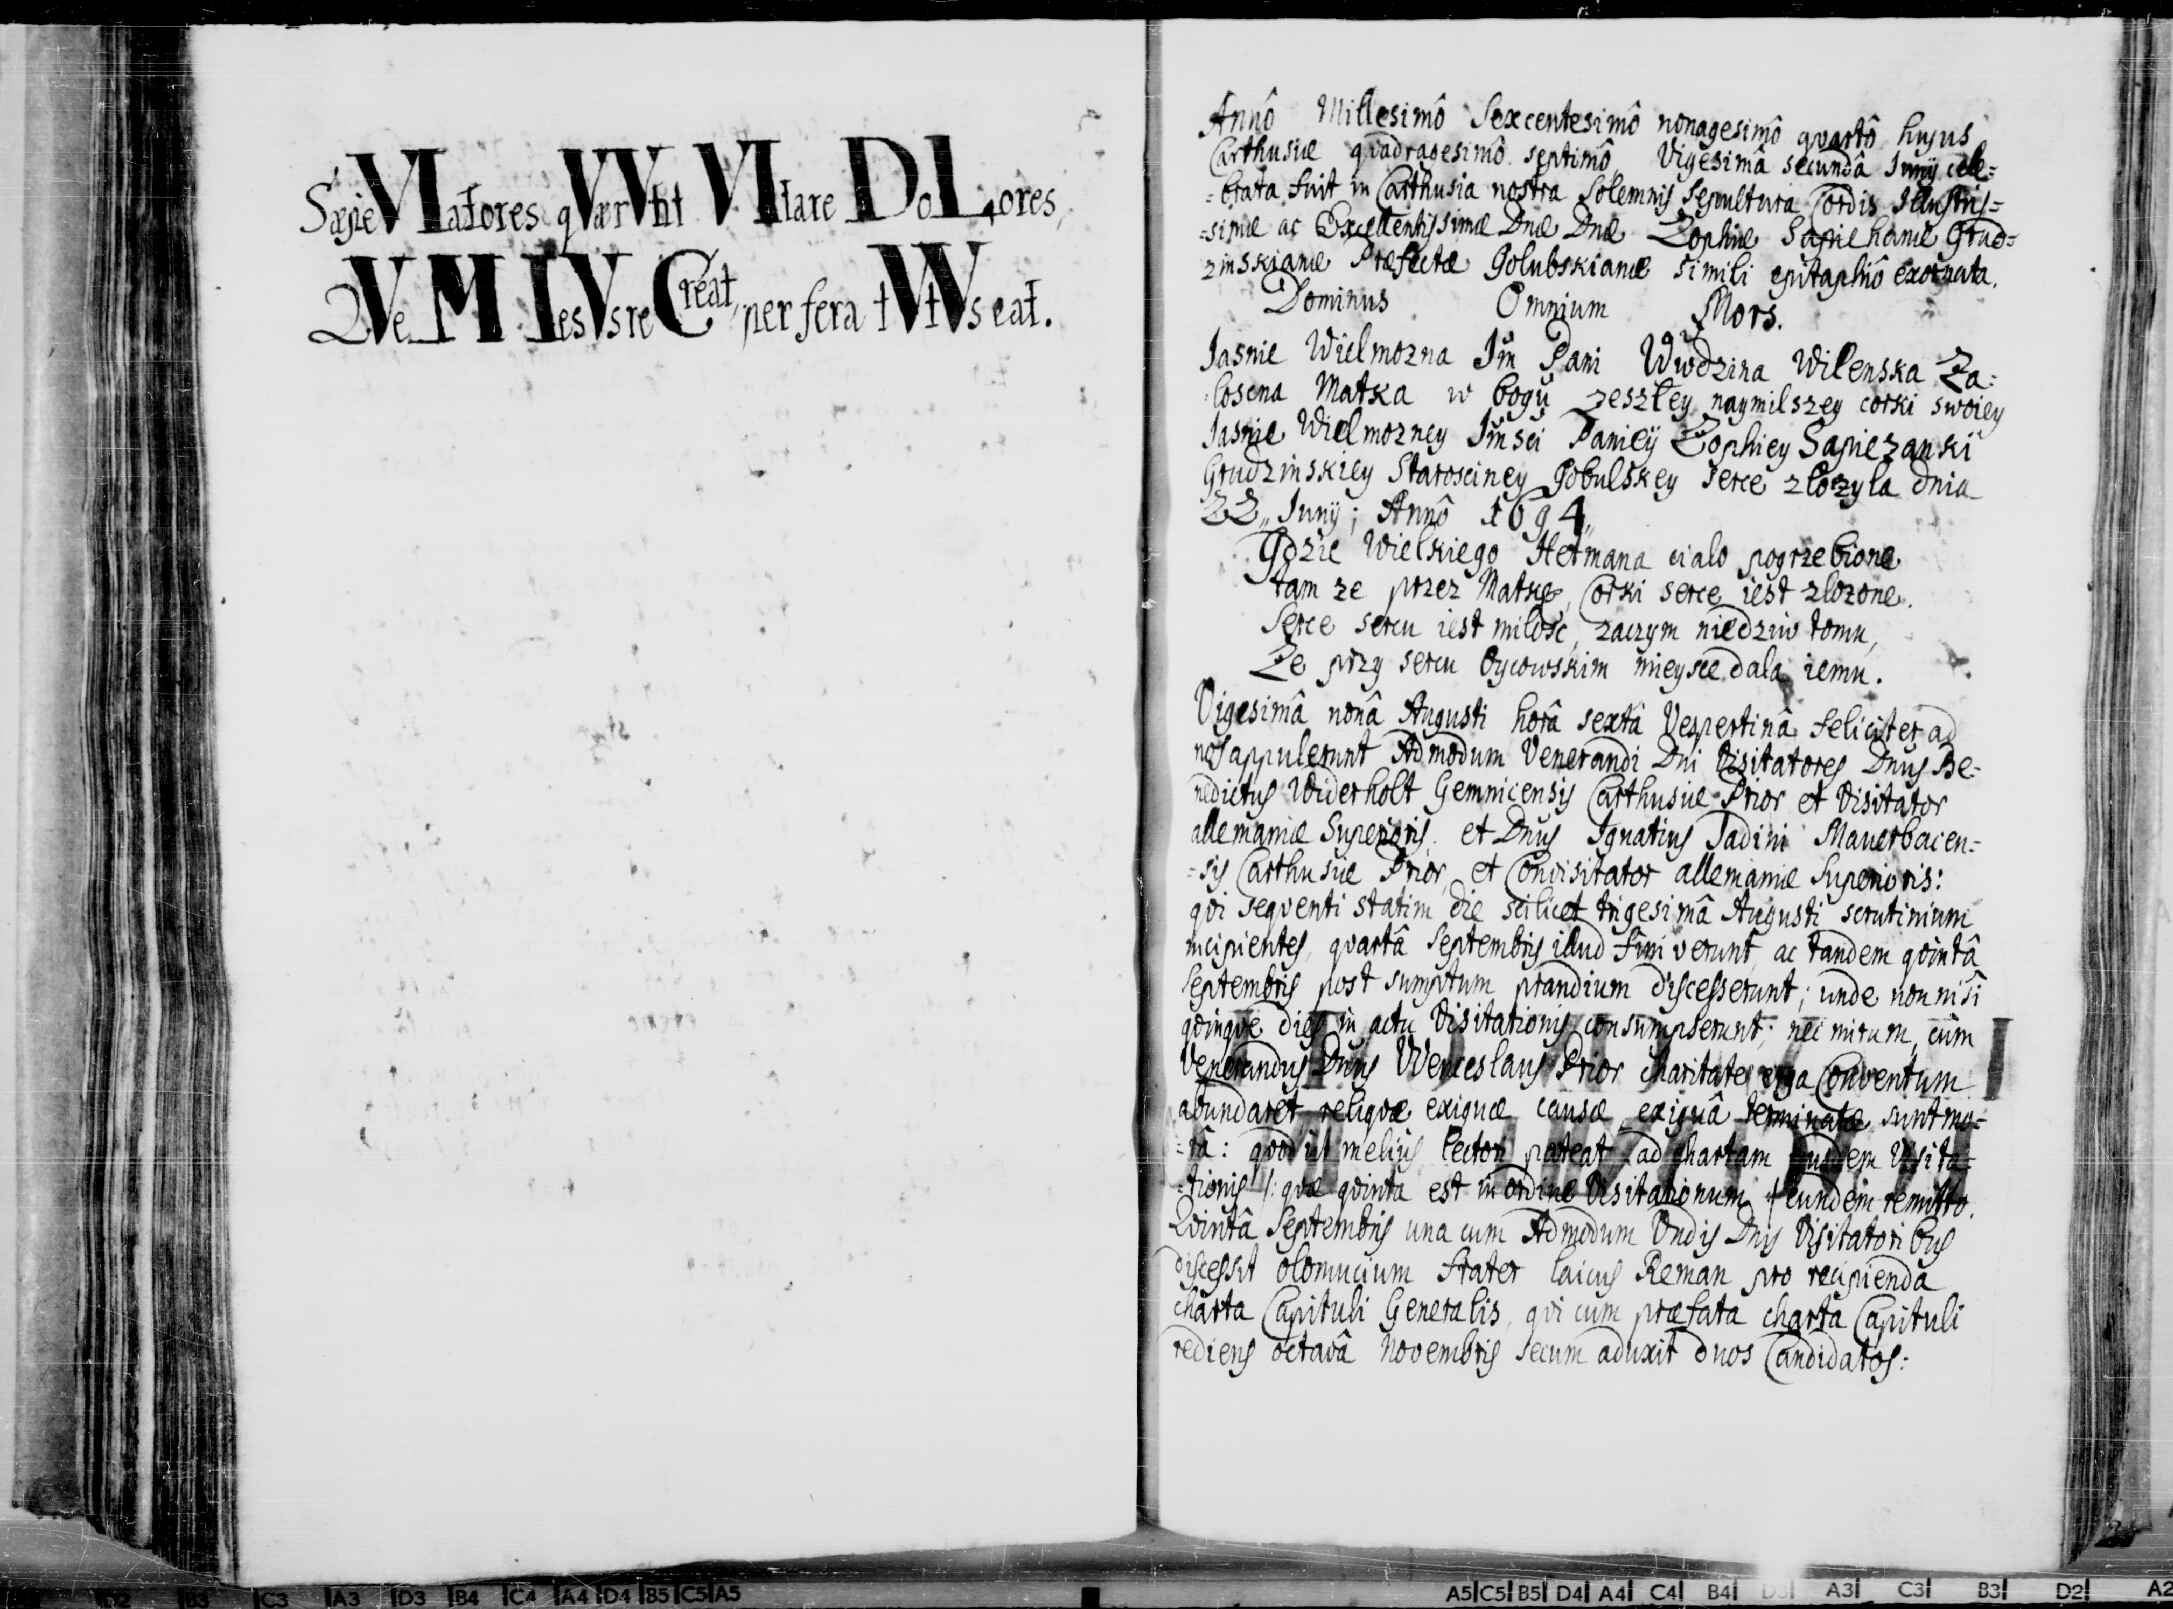 SæpeVIatores qVærVnt VItare DoLores,
QVe MIIesVs reCreat, per fera tVtVs eat.
Annô Millesimô Sexcentesimô nonagesimô quartô hujus
Carthusiæ quadragesimô septimô Vigesimâ secundâ Junij cele=
=brata fuit in Carthusia nostra Solemnis Sepultura Cordis Illustris=
=simæ ac Excellentissimæ Dnæ Dnæ Zophiæ Sapiehanæ Grud=
zinskianæ Præfectæ Golubskianæ simili epitaphiô exornata.
Dominus Omnium Mors.
Jasnie Wielmozna Jm Pani Wwdzina Wilenska Za=
losena Matka w bogu zeszłey naymilszey corki swoiey
Jasnie Wielmozney Jmsci Panieÿ Zophiey Sapiezanki
Grudzinskiey Starosciney Gobulskey serce złozyla dnia
22,, Junij; Annô 1694,,
Gdzie Wielkiego Hetmana cialo pogrzebione
tam ze przez Matkę, Corki serce iest zlozone.
Serce sercu iest milosc, zaczym niedziw tomu,
Ze przy sercu Oycowskim mieysce dala iemu.
Vigesimâ nonâ Augusti horâ sextâ Vespertinâ feliciter ad
nos appulerunt Admodum Venerandi Dni Visitatores Dnus Be=
nedictus Widerholt Gemnicensis Carthusiæ Prior et Visitator
allemaniæ Superioris, et Dnus Ignatius Tadini Mauerbacen=
=sis Carthusiæ Prior, et Convisitator allemaniæ Superioris:
qvi seqventi statim die scilicet trigesimâ Augusti scrutinium
incipientes, qvartâ Septembris illud finiverunt, ac tandem qvintâ
Septembris post sumptum prandium discesserunt; unde non nisi
qvinqve dies in actu Visitationis consumpserunt; nec mirum, cùm
Venerandus Dnus Wenceslaus Prior charitate erga Conventum
abundaret reliqvæ exiguæ causæ exiguâ terminatæ sunt mo=
=râ: qvod ut melius lectori pateat ad chartam ejusdem Visita=
=tionis /: qvæ qvinta est in ordine Visitationum :/ eundem remitto.
Qvintâ Septembris una cum Admodum Vndis Dnis Visitatoribus
discessit olomucium frater laicus Reman pro recipienda
charta Capituli Generalis, qvi cum præfata charta Capituli
rediens octavâ Novembris secum aduxit duos Candidatos: